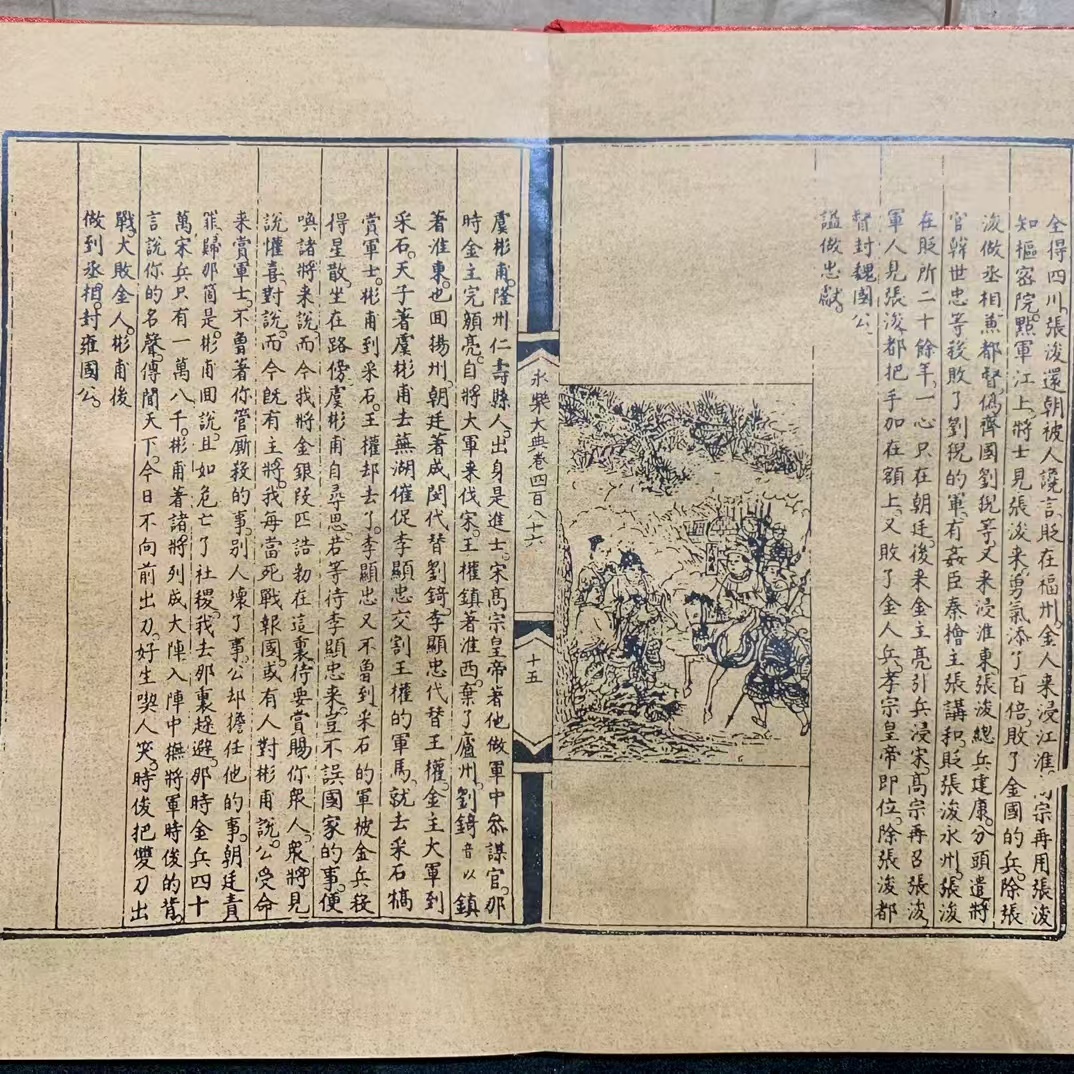 全得四川。張浚還朝被人讒言。貶在福州。金人来浸江淮。高宗再用張浚
知樞密院。點軍江上。將士見張浚来。勇氣添了百倍。敗了金國的兵。除張
浚做丞相兼都督。偽齊國劉猊等。又来浸淮東。張浚總兵建康。分頭遣將
官韓世忠等殺敗了劉猊的軍。有姦臣秦檜主張講和。貶張浚永州。張浚
在貶所二十餘年。一心只在朝廷。後来金主亮引兵浸宋。髙宗再召張浚。
軍人見張浚。都把手加在額上。又敗了金人兵。孝宗皇帝即位。除張浚都
督封魏國公
諡做忠獻。
永樂大典卷四百八十六
十五
虞彬甫。隆州仁壽縣人。出身是進士。宋髙宗皇帝著他做軍中叅謀官。那
時金主完顏亮。自將大軍来伐宋。王權鎮著淮西。棄了廬州。劉錡音以鎮
著淮東。也囬揚州。朝廷著成閔代替劉錡。李顯忠代替王權。金主大軍到
采石。天子著虞彬甫去蕪湖催促李顯忠交割王權的軍馬。就去采石犒
賞軍士。彬甫到采石。王權却去了。李顯忠又不曾到采石的軍被金兵殺
得星散。坐在路傍。虞彬甫自尋思。若等待李顯忠来。豈不誤國家的事。便
喚諸將来說。而今我將金銀段匹誥勑在這裏。待要賞賜你衆人。衆將見
說懽喜。對說。而今旣有主將。我每當死戰報國。或有人對彬甫說。公受命
来賞軍士。不曾著你管厮殺的事。别人壞了事。公却擔任他的事。朝廷責
罪歸那箇是。彬甫囬說。且如危亡了社稷。我去那裏趓避。那時金兵四十
萬宋兵只有一萬八千。彬甫著諸將列成大陣。入陣中撫將軍時俊的背。
言說你的名聲。傳聞天下。今日不向前出刀。好生喫人笑。時俊把雙刀出
戰。大敗金人。彬甫後
做到丞相。封雍國公。